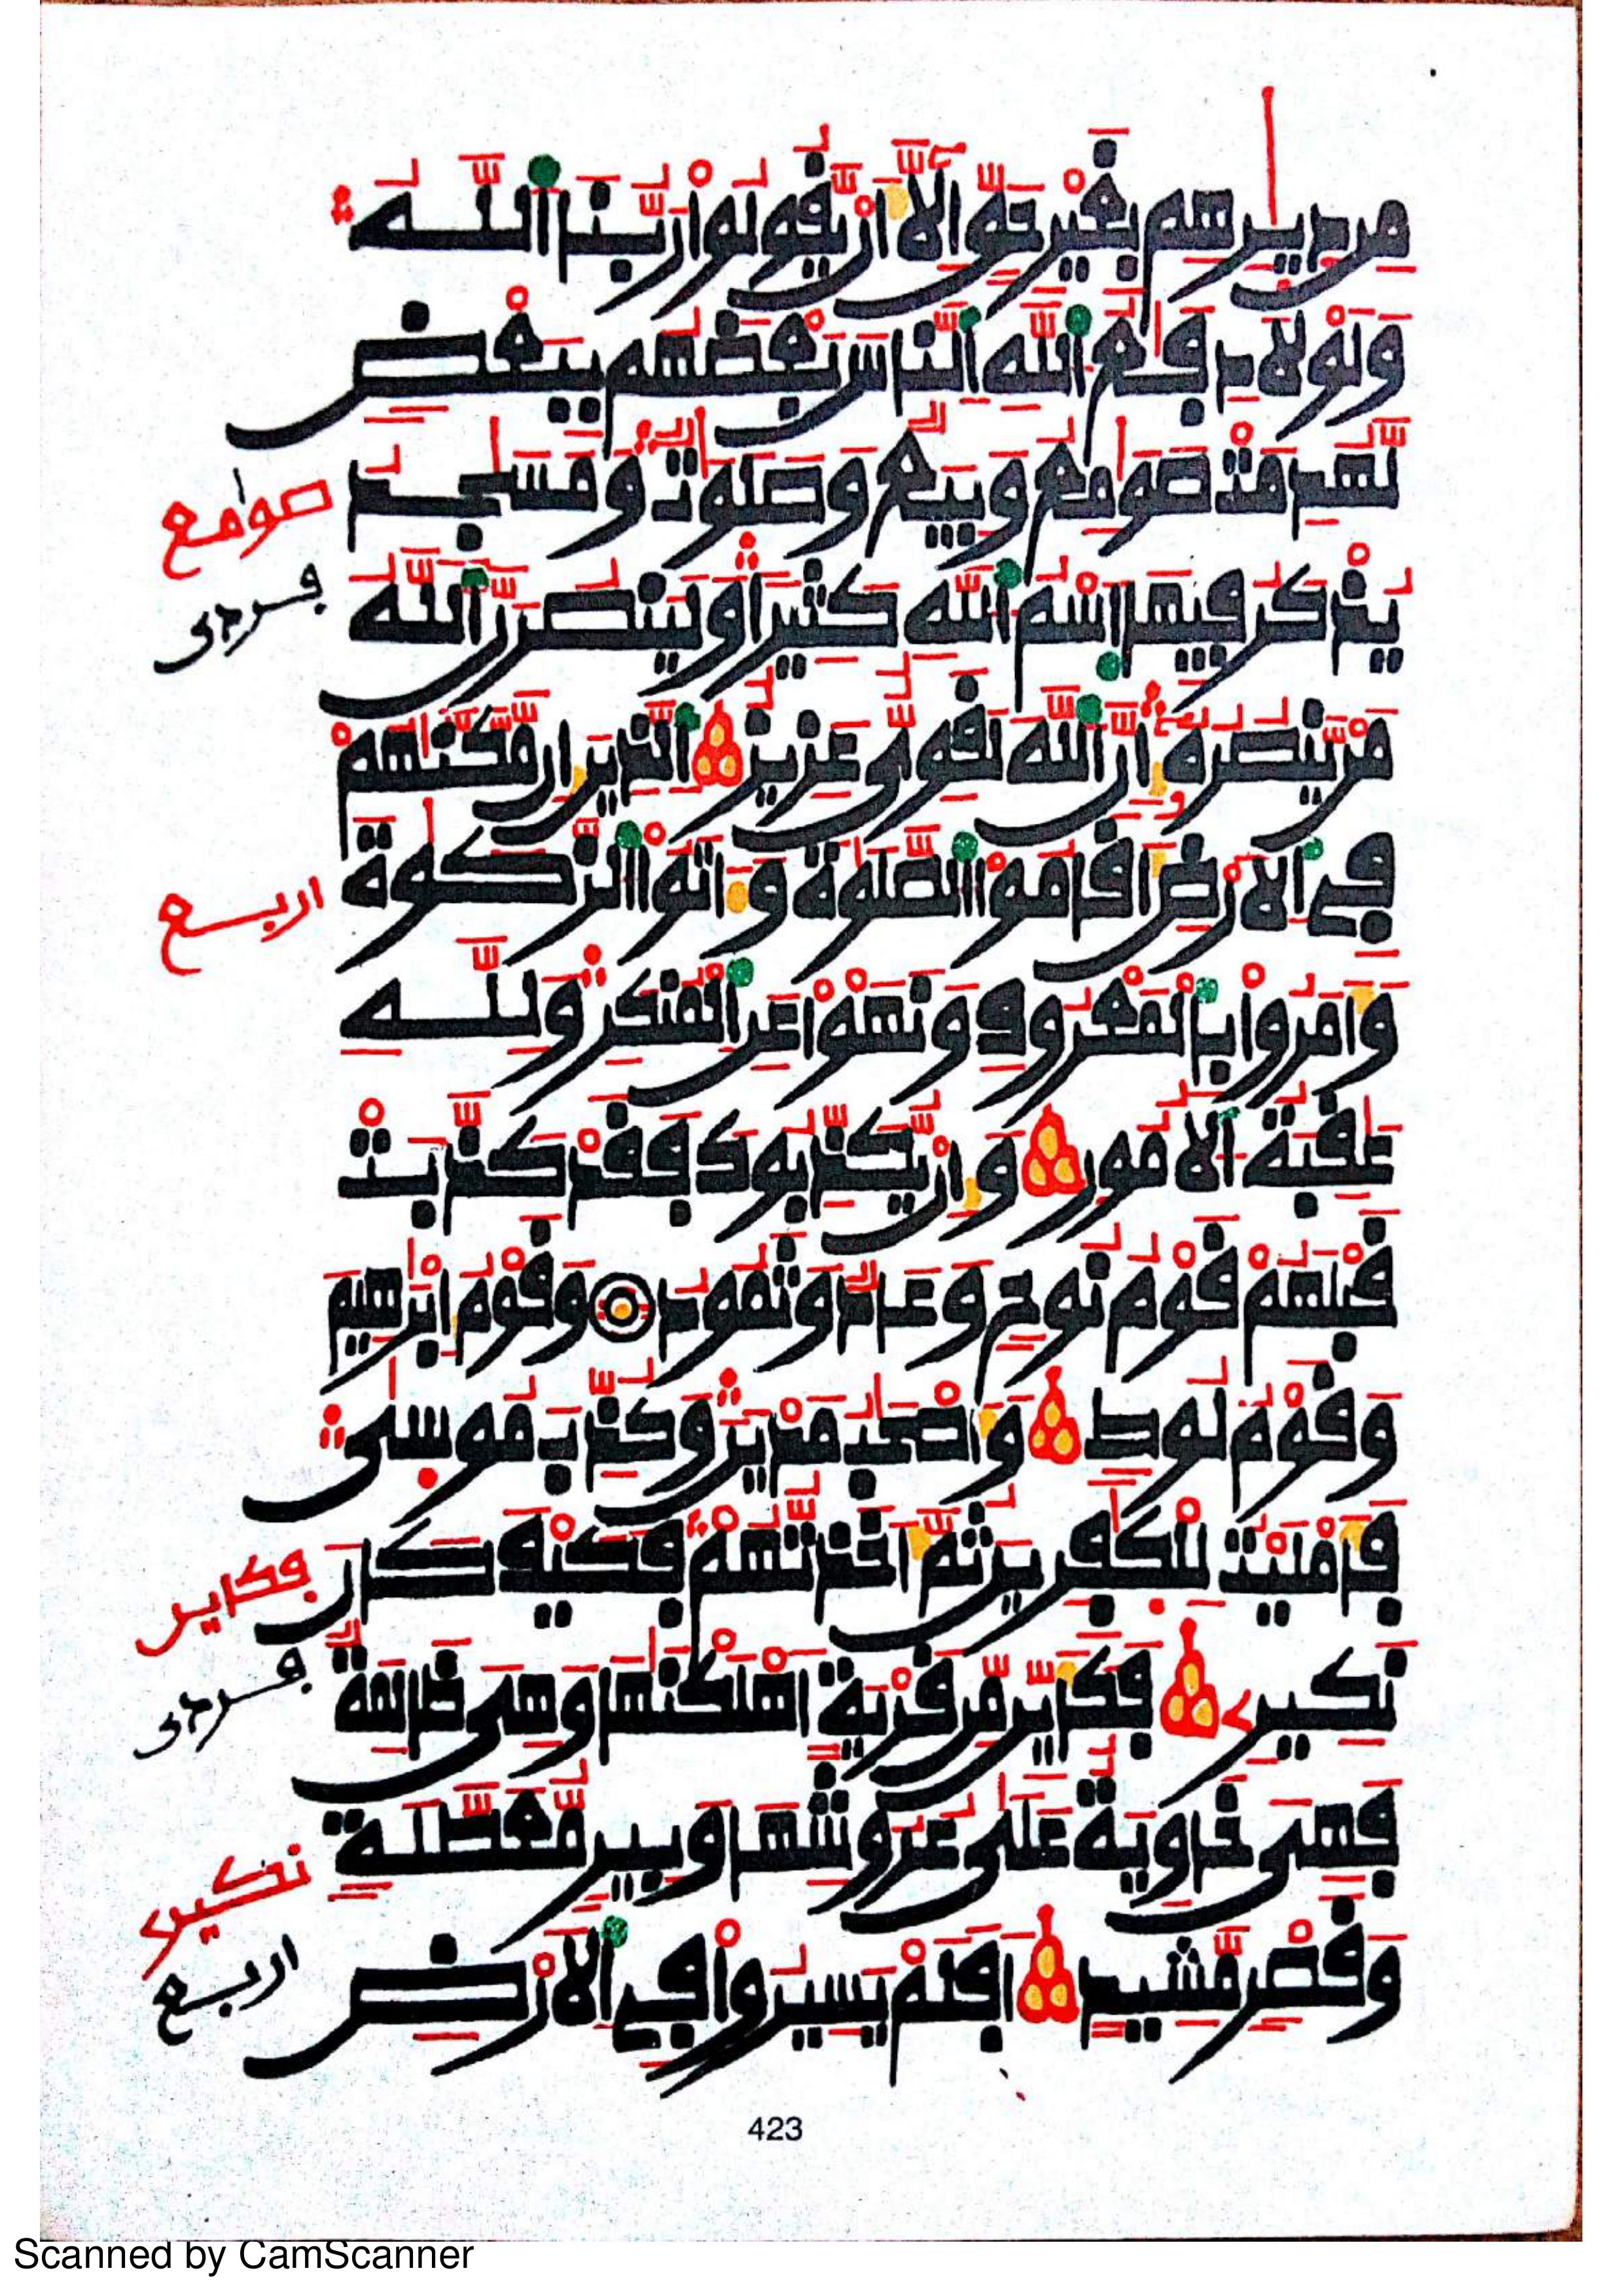 مِن دِيٰرِهِم بِغَيْرِ حَقٍّ اِلَّا أَنْ يَّقُولُواْ رَبُّنَا اَللَّهُ
وَلَوْلَا دِفَٰعُ اُللَّهِ اِلنَّاسَ بَعْضَهُم بِبَعْضٍ
لَّهُدِمَتْ صَوَٰمِعُ وَبِيَعٌ وَصَلَوَٰتٌ وَمَسَٰجِدُ
صوٰمع
يُذْكَرُ فِيهَا اَسْمُ اُللَّهِ كَثِيراً وَلَيَنصُرَنَّ اَللَّهُ
فردى
مَنْ يَّنصُرُهُۥ إِنَّ اَللَّهَ لَقَوِىٌّ عَزِيزٌ اِلذِينَ إِن مَّكَّنَّٰهُمْ
فِى اِلَارْضِ أَقَامُواْ اُلصَّلَوٰةَ وَءَاتَوُاْ اُلزَّكَوٰةَ
اربع
وَأَمَرُواْ بِالْمَعْرُوفِ وَنَهَوْاْ عَنِ اِلْمُنكَرِ وَلِلهِ
عَٰقِبَةُ اُلَامُورِ وَإِنْ يُّكَذِّبُوكَ فَقَدْ كَذَّبَتْ
قَبْلَهُمْ قَوْمُ نُوحٍ وَعَادٌ وَثَمُودُ وَقَوْمُ إِبْرَٰهِيمَ
وَقَوْمُ لُوطٍ وَأَصْحَٰبُ مَدْيَنَ وَكُذِّبَ مُوسَىٰ
فَأَمْلَيْتُ لِلْكَٰفِرِينَ ثُمَّ أَخَذتُّهُمْ فَكَيْفَ كَانَ
فكاين
نَكِيرِۦ فَكَأَيِّن مِّن قَرْيَةٍ اَهْلَكْنَٰهَا وَهِىَ ظَالِمَةٌ
فردى
فَهِىَ خَاوِيَةٌ عَلَىٰ عُرُوشِهَا وَبِيرٍ مُّعَطَّلَةٍ
نكيرے
وَقَصْرٍ مَّشِيدٍ اَفَلَمْ يَسِيرُواْ فِى اِلَارْضِ
اربع
423
Scanned by CamScanner